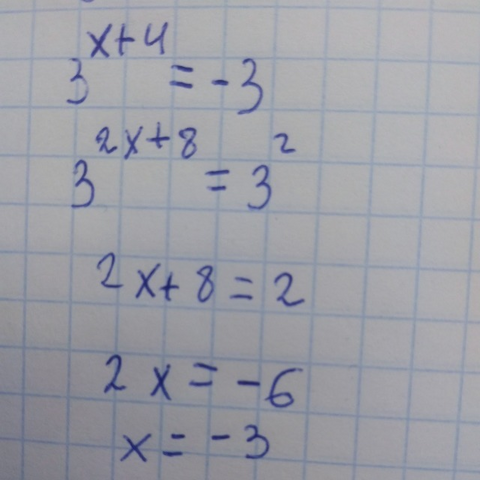 3^{x+4} = -3
3^{2x+8} = 3^2
2x+8 = 2
2x = -6
x = -3